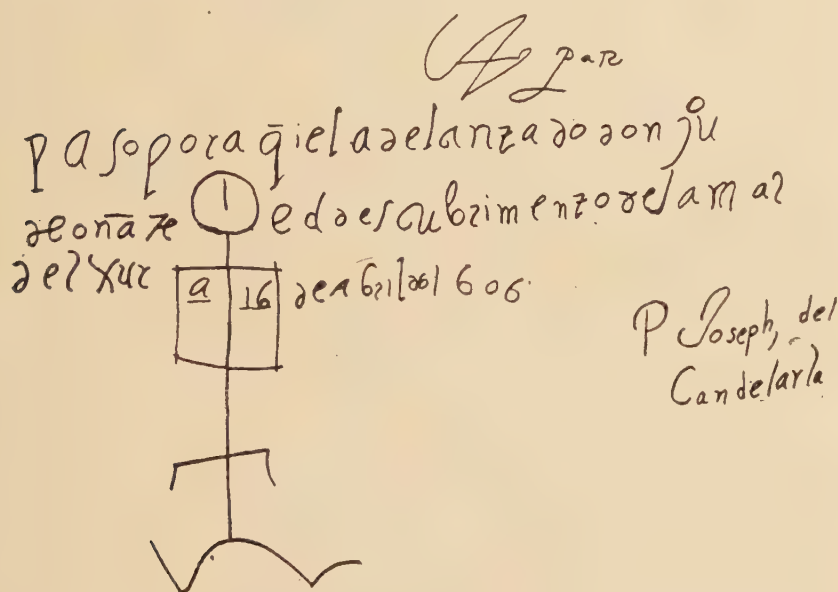 par
pasoporaq̄ielaꝺelanzaꝺoꝺonjũ
ꝺeoñate edꝺescubrimenzoꝺelamar
ꝺelxur a 16 ꝺeabrilꝺe1606
P Joseph, del
Candelarla